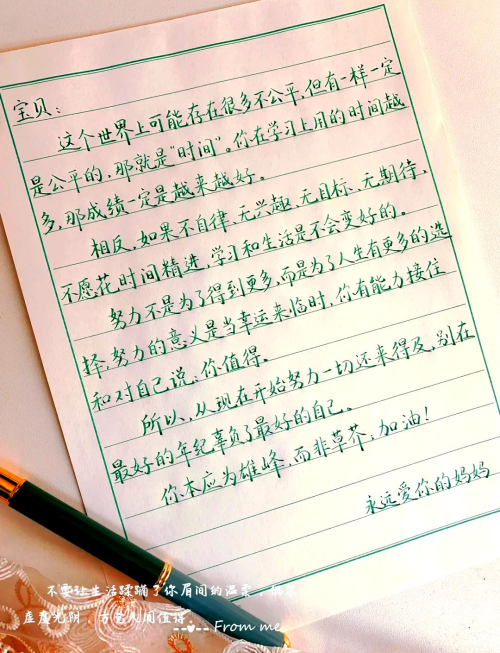 宝贝:
这个世界上可能存在很多不公平,但有一样一定
是公平的,那就是“时间”。你在学习上用的时间越
多,那成绩一定是越来越好。
相反,如果不自律、无兴趣、无目标、无期待,
不愿花时间精进,学习和生活是不会变好的。
努力不是为了得到更多,而是为了人生有更多的选
择,努力的意义是当幸运来临时,你有能力接住
和对自己说:你值得。
所以,从现在开始努力一切还来得及,别在
最好的年纪辜负了最好的自己。
你本应为雄峰,而非草芥,加油!
永远爱你的妈妈
不要让生活蹂躏了你眉间的温柔,
虚度光阴,方觉人间值得
From me